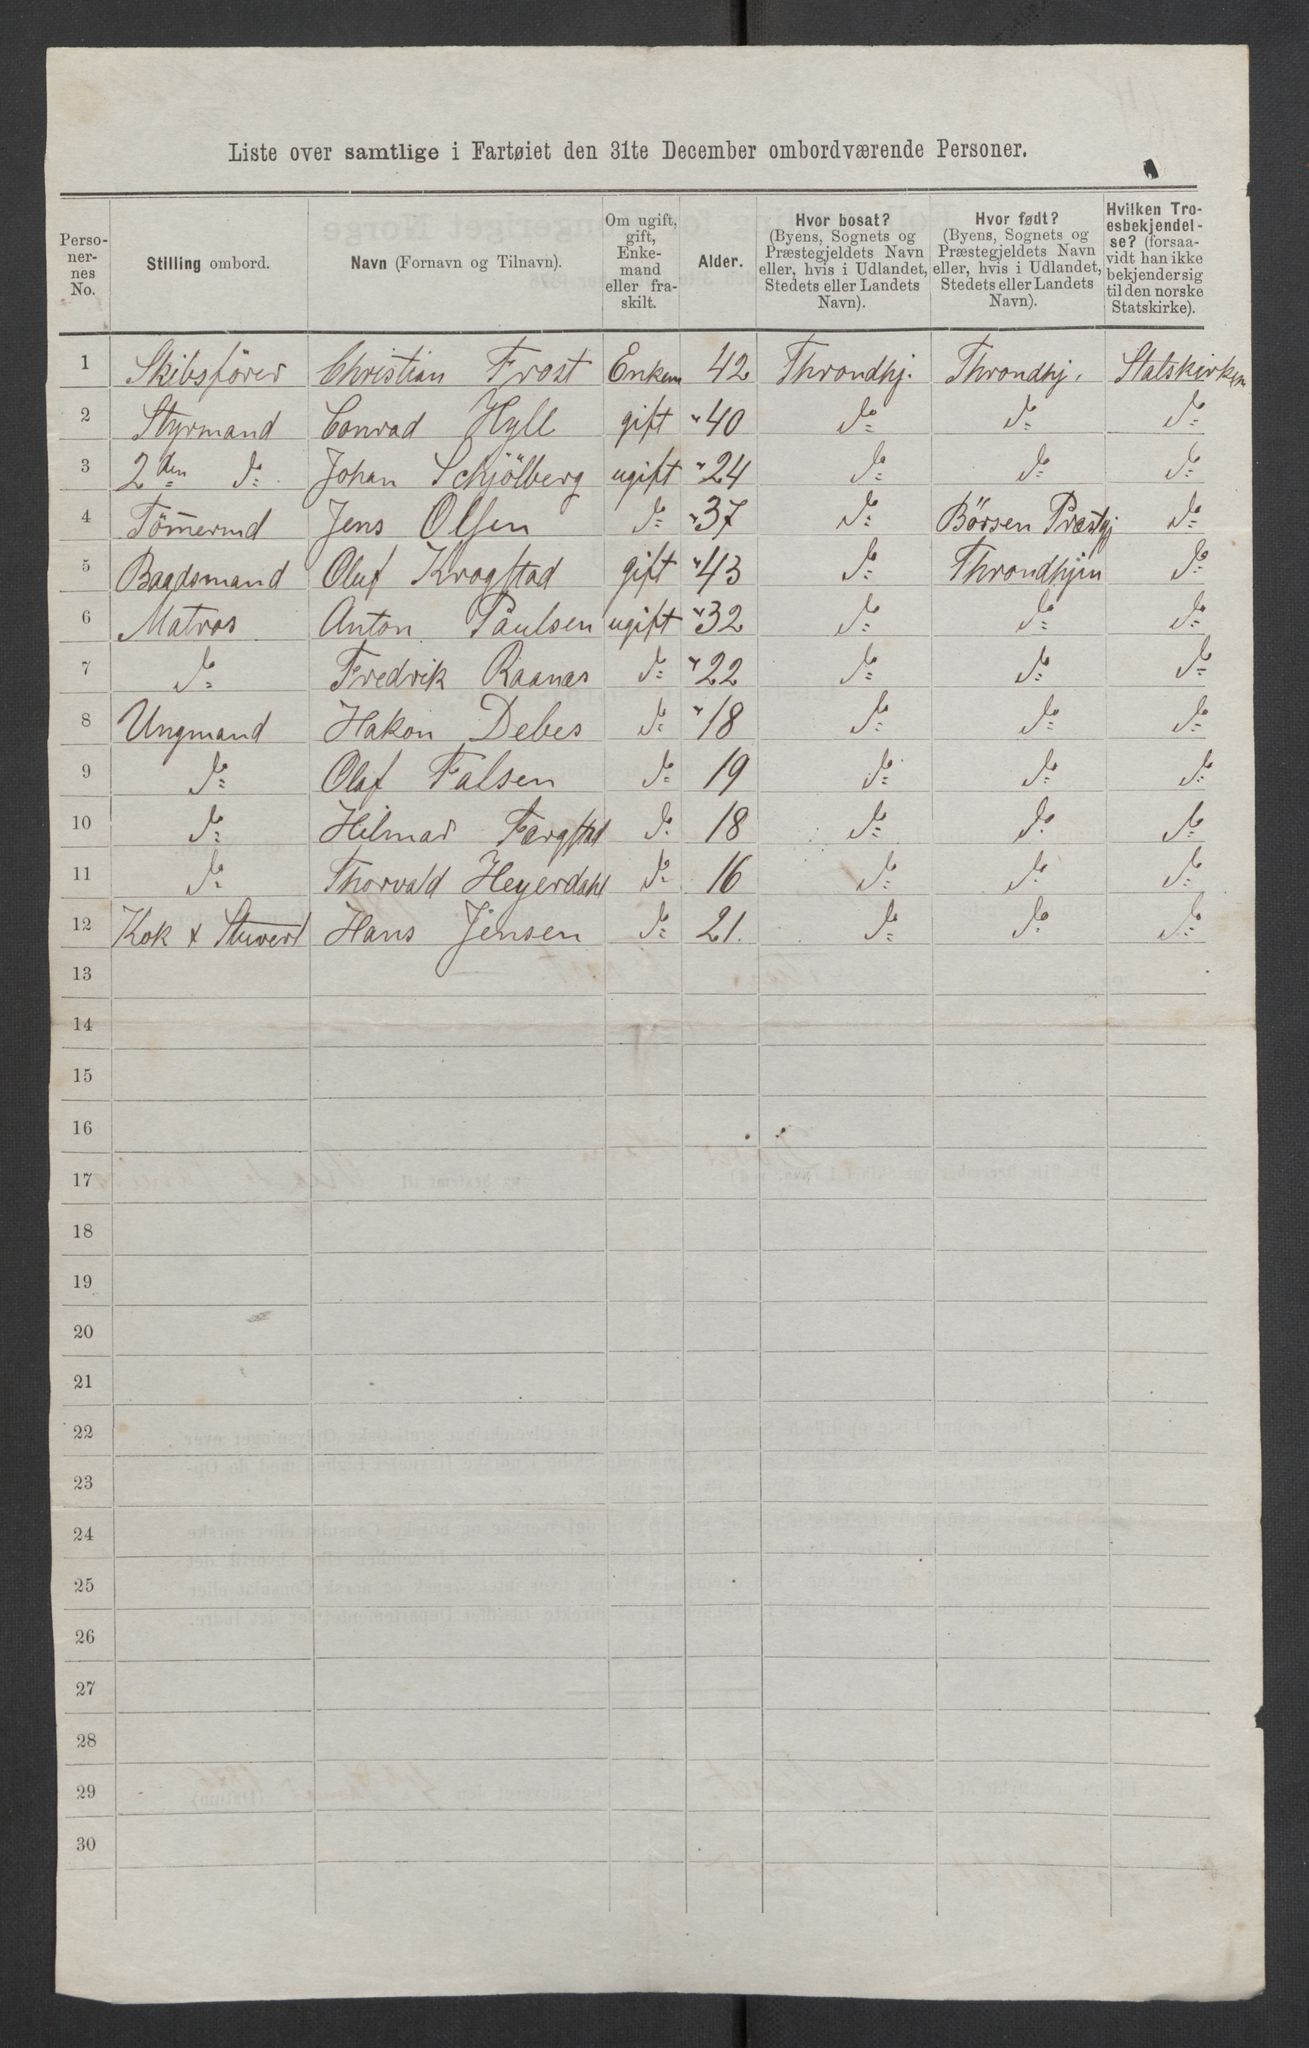 Liste over samtlige i Fartøiet den 31te December ombordværende Personer.
Perso-
ner-
nes
No.
Stilling ombord.
Navn (Fornavn og Tilnavn).
Om ugift,
gift,
Enke-
mand
eller fra-
skilt.
Alder.
Hvor bosat?
(Byens, Sognets og
Præstegjeldets Navn
eller, hvis i Udlandet,
Stedets eller Landets
Navn).
Hvor født?
(Byens, Sognets og
Præstegjeldets Navn
eller, hvis i Udlandet,
Stedets eller Landets
Navn).
Hvilken Tro-
esbekjendel-
se? (forsaa-
vidt han ikke
bekjender sig
til den norske
Statskirke).
1 Skibsfører Christian Frost Enkem 42 Throndhj. Throndhj. Statskirken
2 Styrmand Conrad Hyll gift " 40 do do do
3 2den do Johan Schjölberg ugift " 24 do do do
4 Tömermd Jens Olsen do " 37 do Börsen Præstgj do
5 Baadsmand Oluf Krogstad gift " 43 do Throndhjem do
6 Matros Anton Paulsen ugift " 32 do do do
7 do Fredrik Raanæs do " 22 do do do
8 Ungmand Hakon Debes do " 18 do do do
9 do Olaf Falsen do 19 do do do
10 do Hilmar Fargstad do 18 do do do
11 do Thorvald Heyerdahl do 16 do do do
12 Kok & Stuvert Hans Jensen do 21. do do do
13
14
15
16
17
18
19
20
21
22
23
24
25
26
27
28
29
30